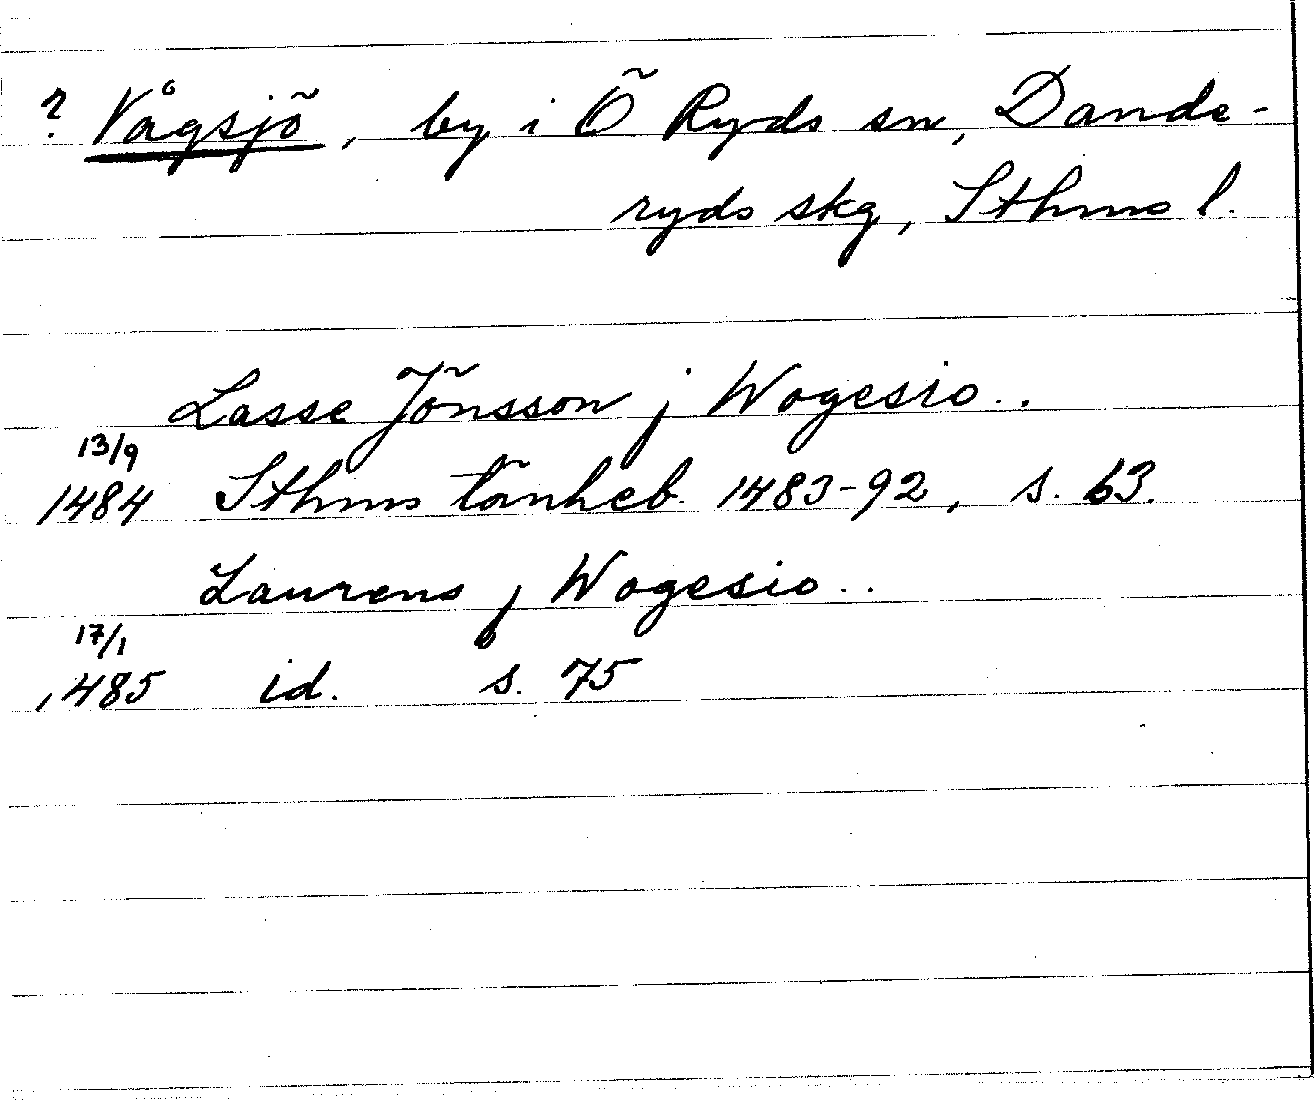 ? Vågsjö, by i Ö Ryds sn, Dande-
ryds skg, Sthms l.
Lasse Jönsson j Wogesio..
13/9
1484 Sthms tänkeb. 1483-92, s. 63.
Laurens j Wogesio..
17/1
1485 id. s. 75